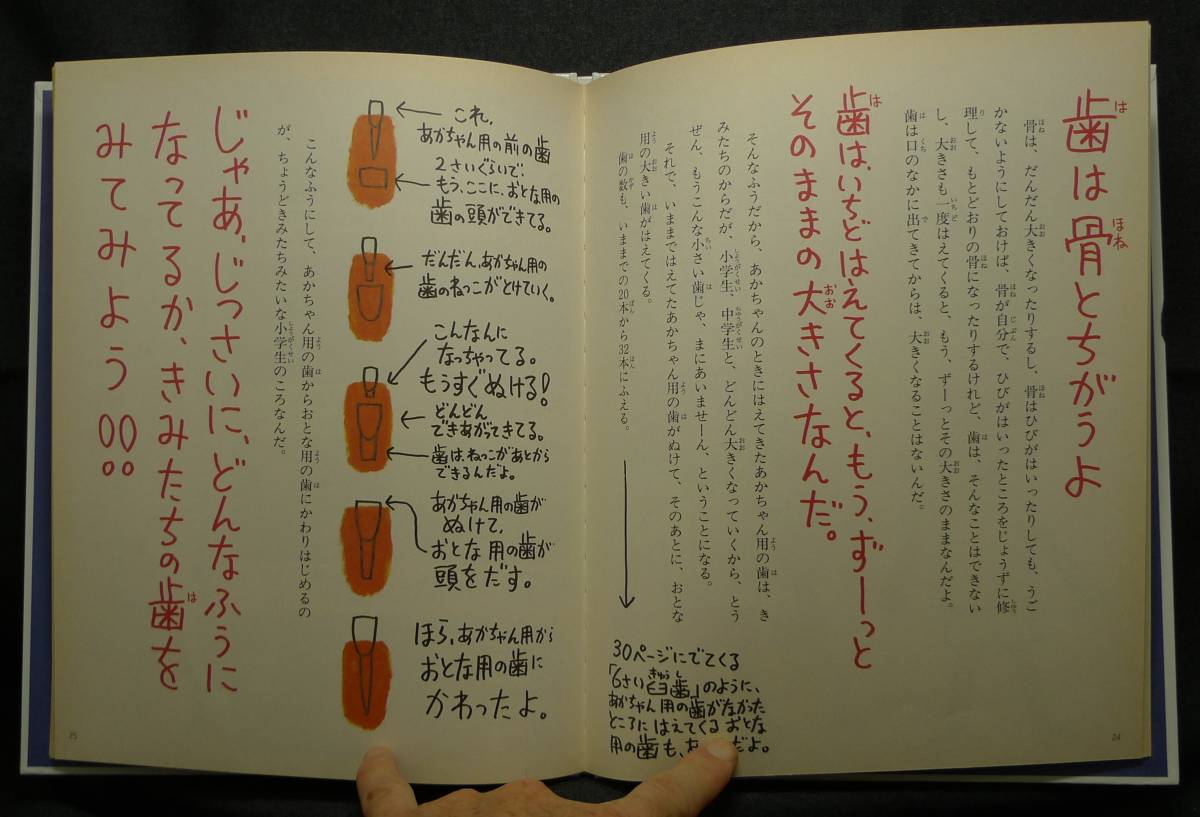 歯は骨とちがうよ
骨は、だんだん大きくなったりするし、骨はひびがはいったりしても、うご
かないようにしておけば、骨が自分で、ひびがはいったところをじょうずに修
理して、もとどおりの骨になったりするけれど、歯は、そんなことはできない
し、大きさも一度はえてくると、もう、ずーっとその大きさのままなんだよ。
歯は口のなかに出てきてからは、大きくなることはないんだ。
歯は、いちどはえてくると、もう、ずーっと
そのままの大きさなんだ。
そんなふうだから、あかちゃんのときにはえてきたあかちゃん用の歯は、き
みたちのからだが、小学生、中学生と、どんどん大きくなっていくから、とう
ぜん、もうこんな小さい歯じゃ、まにあいませーん、ということになる。
それで、いままではえてたあかちゃん用の歯がぬけて、そのあとに、おとな
用の大きい歯がはえてくる。
歯の数も、いままでの20本から32本にふえる。
30ページにでてくる
「6さい臼歯」のように、
あかちゃん用の歯がなかった
ところにはえてくるおとな
用の歯も、あ だよ。
24
これ、
あかちゃん用の前の歯
2さいぐらいで、
もう、ここに、おとな用の
歯の頭ができてる。
だんだん、あかちゃん用の
歯のねっこがとけていく。
こんなんに
なっちゃってる。
もうすぐぬける!
どんどん
できあがってきてる。
歯は、ねっこがあとから
できるんだよ。
あかちゃん用の歯が
ぬけて、
おとな用の歯が
頭をだす。
ほら、あかちゃん用から
おとな用の歯に
かわったよ。
こんなふうにして、あかちゃん用の歯からおとな用の歯にかわりはじめるの
が、ちょうどきみたちみたいな小学生のころなんだ。
じゃあ、じっさいに、どんなふうに
なってるか、きみたちの歯を
みてみよう!!
25